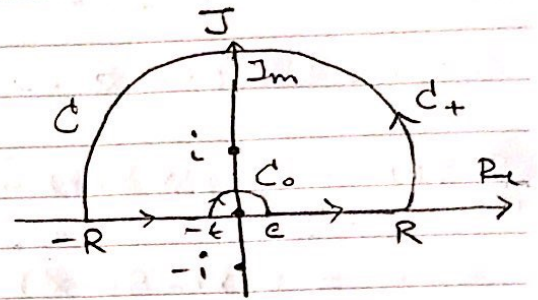 J
Im
C
C+
i
C₀
Re
-R
-ϵ
ϵ
R
-i